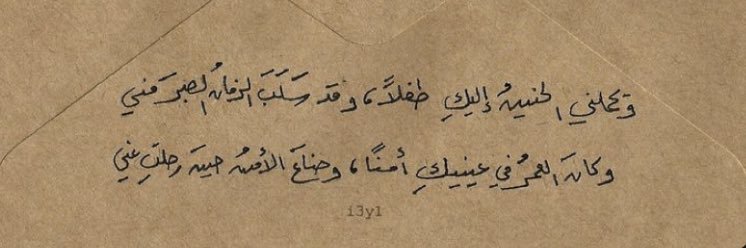 ويحملني الحنينُ إليكِ طفلاً، وقد سَلَبَ الزمانُ الصبرَ مني
وكانَ العمرُ في عينيكِ أمنًا، وضاعَ الأمنُ حينَ رحلتِ عني
i3y1